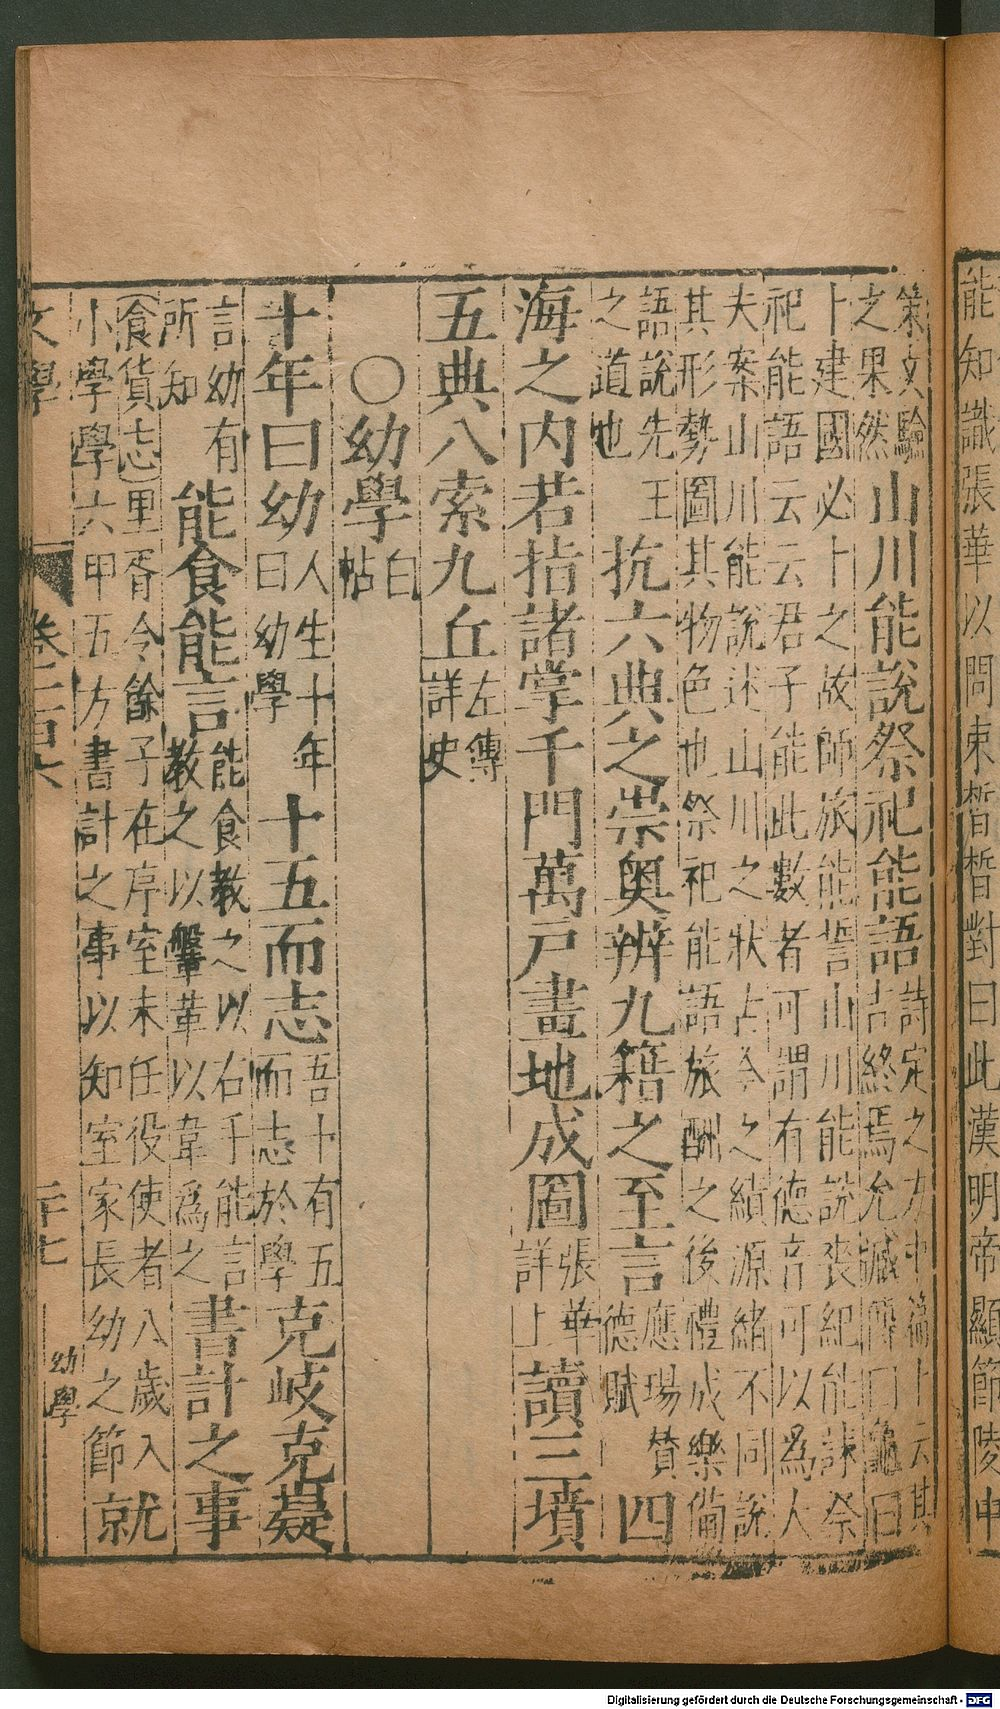 能知識張華以問束晳晳對曰此漢明帝顯節陵中
策文驗
之果然
山川能說祭祀能語
詩定之方中篇卜云其
吉終焉允臧傳曰龜曰
卜建國必卜之故師旅能誓山川能說喪紀能誄祭
祀能語云云君子能此數者可謂有德音可以為人
夫案山川能說述山川之狀占今之績源緒不同說
其形勢圖其物色也祭祀能語旅酬之後禮成樂備
語說先王
之道也
抗六典之崇奧辨九籍之至言
應瑒贊
德賦
四
海之內若指諸掌千門萬戶畫地成圖
張華
詳上
讀三墳
五典八索九丘
左傳
詳史
〇幼學
白
帖
十年曰幼
人生十年
曰幼學
十五而志
吾十有五
而志於學
克岐克嶷
言幼有
所知
能食能言
能食教之以右手能言
教之以鞶革以韋為之
書計之事
食貨志里胥令餘子在序室未任役使者八歲入
小學學六甲五方書計之事以知室家長幼之節
就
文學
卷二百六
二十七
幼學
Digitalisierung gefördert durch die Deutsche Forschungsgemeinschaft - DFG